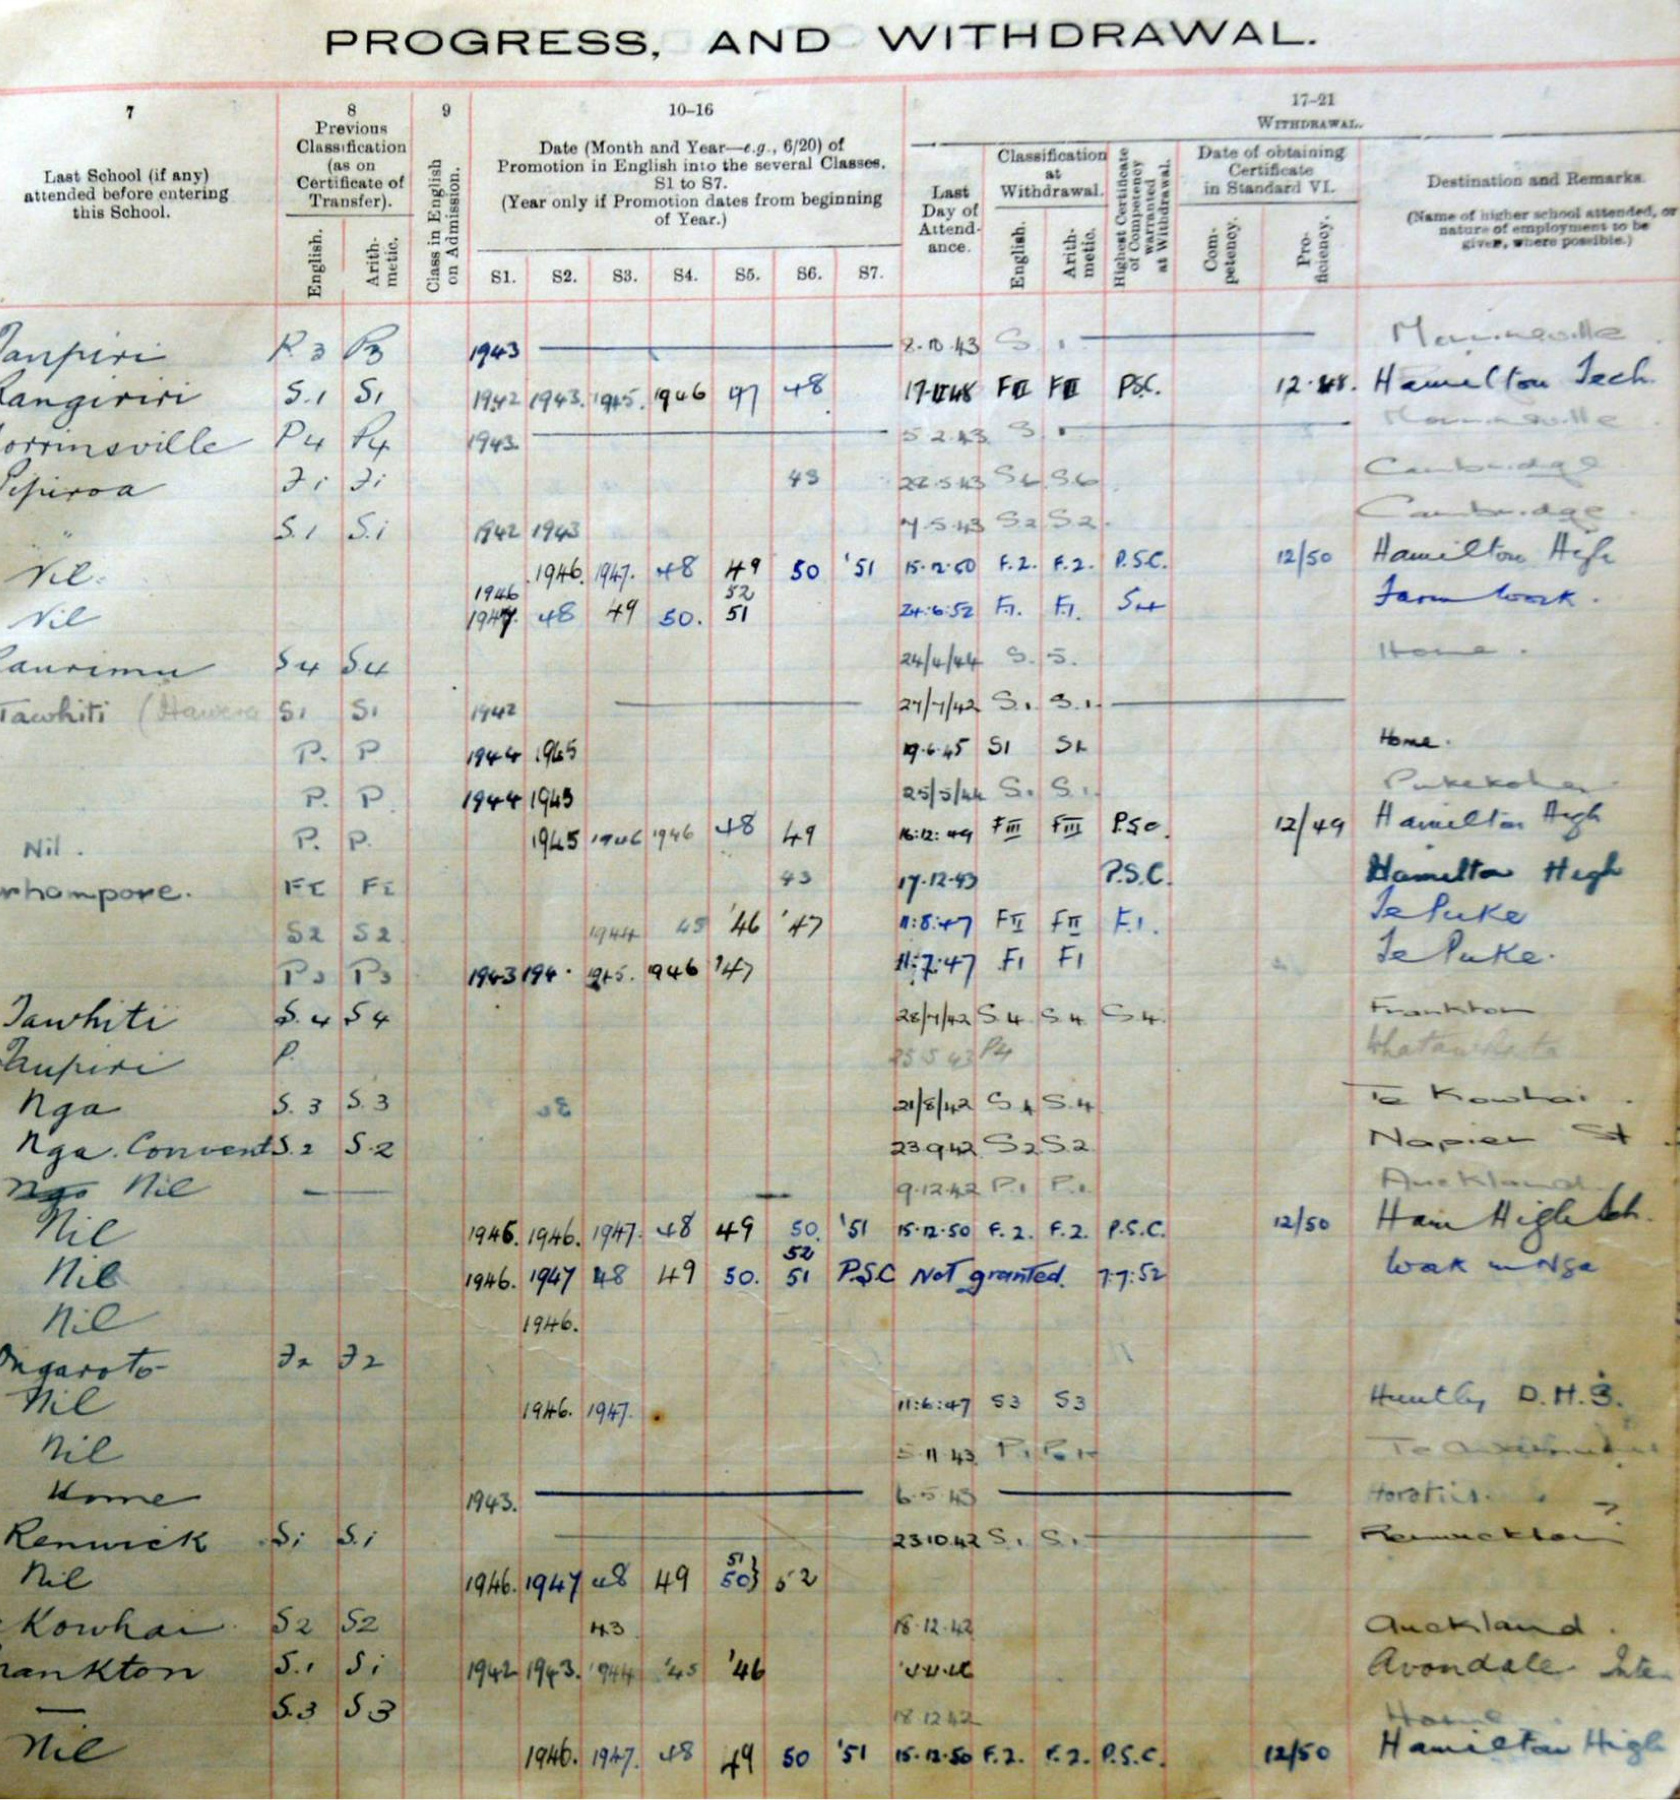 PROGRESS, AND WITHDRAWAL.
7 8 9 10–16 17–21
Last School (if any) attended before entering this School.
Previous Classification (as on Certificate of Transfer).
English. Arithmetic.
Class in English on Admission.
Date (Month and Year—e.g., 6/20) of Promotion in English into the several Classes. S1 to S7.
(Year only if Promotion dates from beginning of Year.)
S1. S2. S3. S4. S5. S6. S7.
WITHDRAWAL.
Last Day of Attendance.
Classification at Withdrawal.
English. Arithmetic.
Highest Certificate of Competency warranted at Withdrawal.
Date of obtaining Certificate in Standard VI.
Competency. Proficiency.
Destination and Remarks.
(Name of higher school attended, or nature of employment to be given, where possible.)
P3 1943 8.10.43 S. 1
Rangiriri S.1 S1 1942 1943. 1945. 1946 48 FII FII P.S.C. Hamilton Tech.
orrinsville P4 P4 1943 5.2.43 S. 1
43 S6 S6 Cambridge
S.1 S.1 1942 1943 7.5.43 S2 S2. Cambridge
Nil. 1946. 1947. 48 49 50 '51 15.12.50 F.2. F.2. P.S.C. 12/50 Hamilton High
Nil 1946 1947. 48 49 50. 52 51 24:6:52 F1. F1. S4 Farm Work.
aurimu S4 S4 24/4/44 S. 5. Home.
Tawhiti (Hawera S1 S1 1942 27/7/42 S.1. S.1.
P. P 1944 1945 19.6.45 S1 Home.
P. P. 1944 1945 S. S.1. Pukekohe
Nil. P. P. 1945 1946 1946 48 49 16:12:49 FIII FIII P.S.C. 12/49 Hamilton High
rhampore. FI FI 43 17.12.43 P.S.C. Hamilton High
S2 S2 1944 45 '46 '47 11:8:47 FII FII F.1. Te Puke
P3 P3 1943 194 1945. 1946 '47 11:7:47 F1 F1 Te Puke.
Tawhiti S.4 S4 28/7/42 S.4 S.4 S.4. Frankton
Taupiri P. 25.5.43 P4
Nga S.3 S.3 21/8/42 S.4 S.4 Te Kowhai.
Nga. Convent S.2 S.2 23.9.42 S2 S.2 Napier St
Nga Nil — — 9.12.42 P.1 P.1. Auckland
Nil 1945. 1946. 1947. 48 49 50. '51 15.12.50 F.2. F.2. P.S.C. 12/50 Ham High Sch.
Nil 1946. 1947 48 49 50. 52 51 P.S.C Not granted. 7:7:52 Work in Nga
Nil 1946.
Ongaroto F2 F2
Nil 1946. 1947. 11:6:47 S3 S3 Huntly D.H.S.
Nil 5.11.43
Home 1943. 6.5.43
Renwick S1 S.1 23.10.42 S.1 S.1
Nil 1946. 1947 48 49 51 50} 52
Kowhai S2 S2 43 18.12.42 Auckland.
rankton S.1 S1 1942 1943. 1944 '45 '46 Avondale Inte
— S.3 S3 18.12.42 Home
Nil 1946. 1947. 48 49 50 '51 15.12.50 F.2. F.2. P.S.C. 12/50 Hamilton High